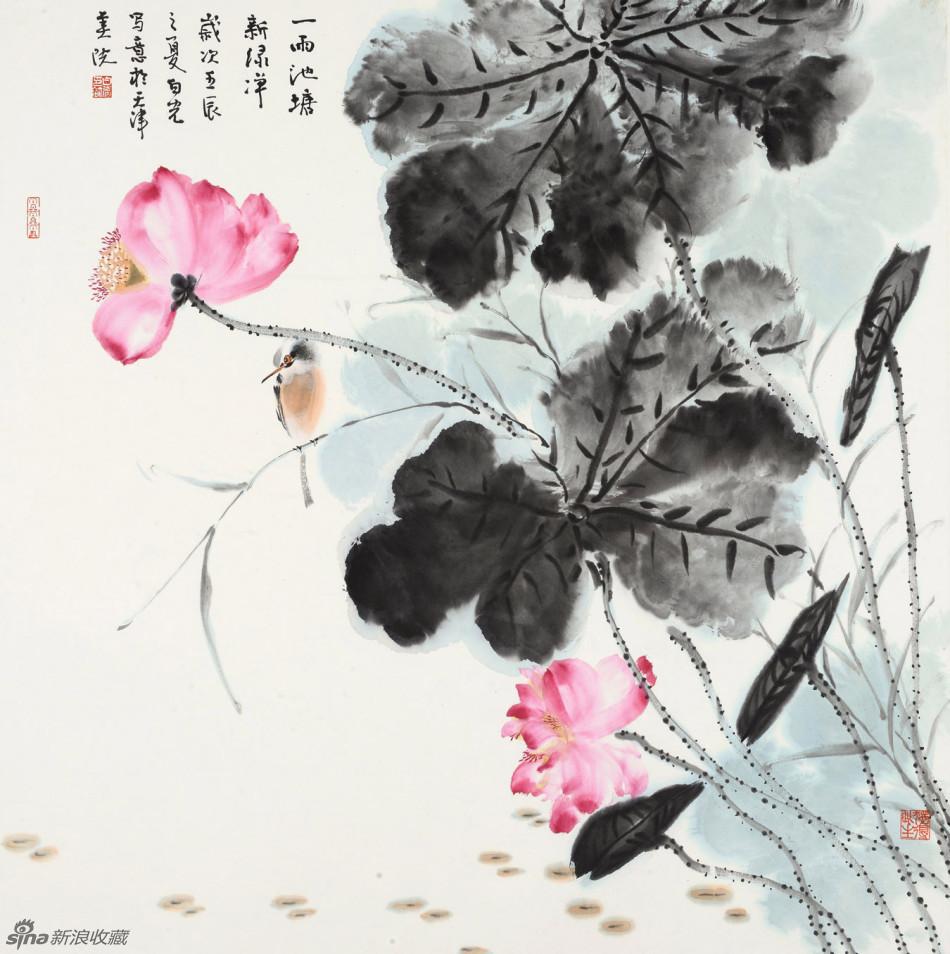 一雨池塘
新绿净
歲次壬辰
之夏白光
写意於天津
美院
sina新浪收藏